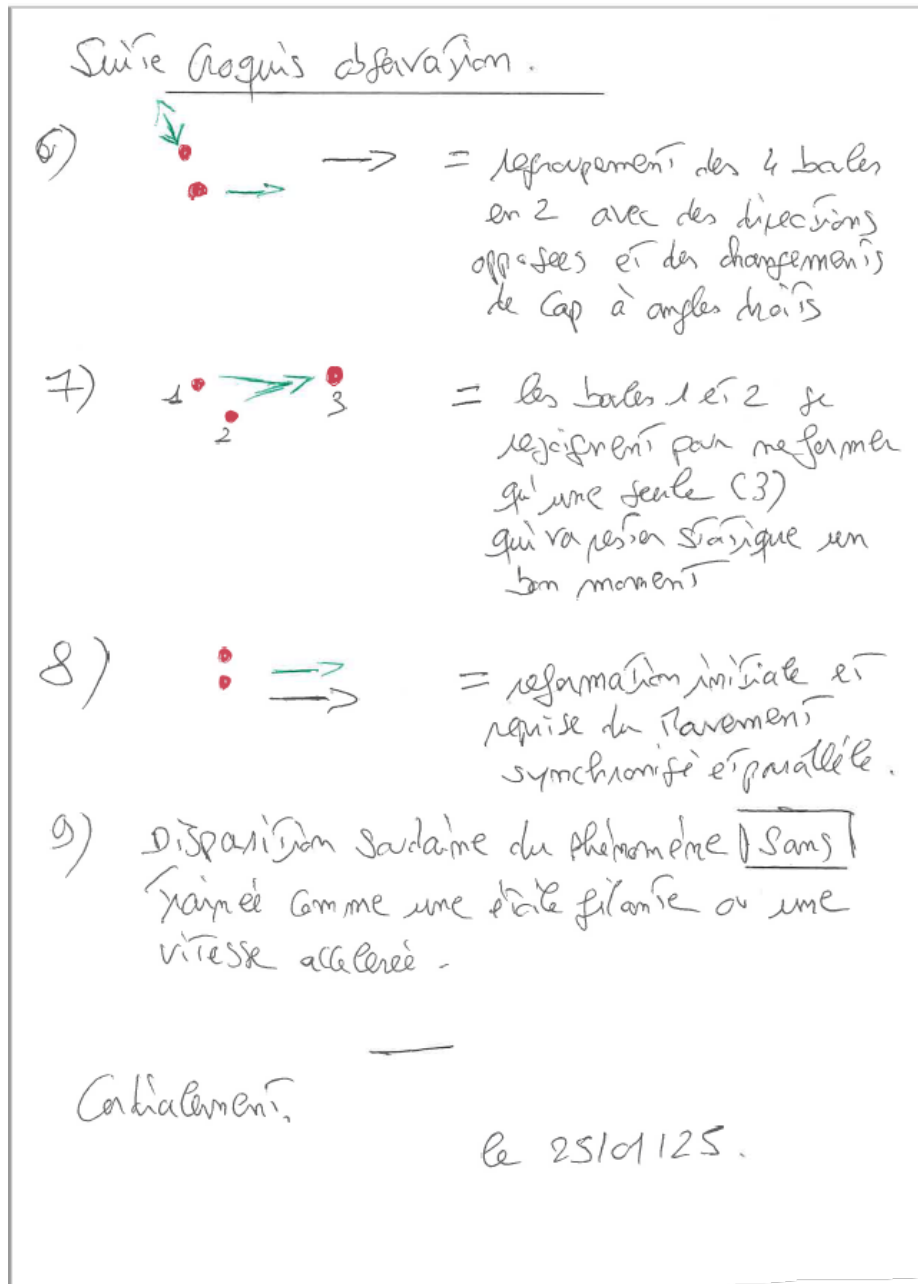 Suite Croquis observation.
6) = regroupement des 4 boules
en 2 avec des directions
opposées et des changements
de Cap à angles droits
7) 1 2 3 = les boules 1 et 2 se
rejoignent pour ne former
qu'une seule (3)
qui va rester statique un
bon moment
8) = reformation initiale et
reprise du mouvement
synchronisé et parallèle.
9) Disparition soudaine du phénomène Sans
trainée comme une étoile filante ou une
vitesse accelerée.
Cordialement,
le 25/01/25.